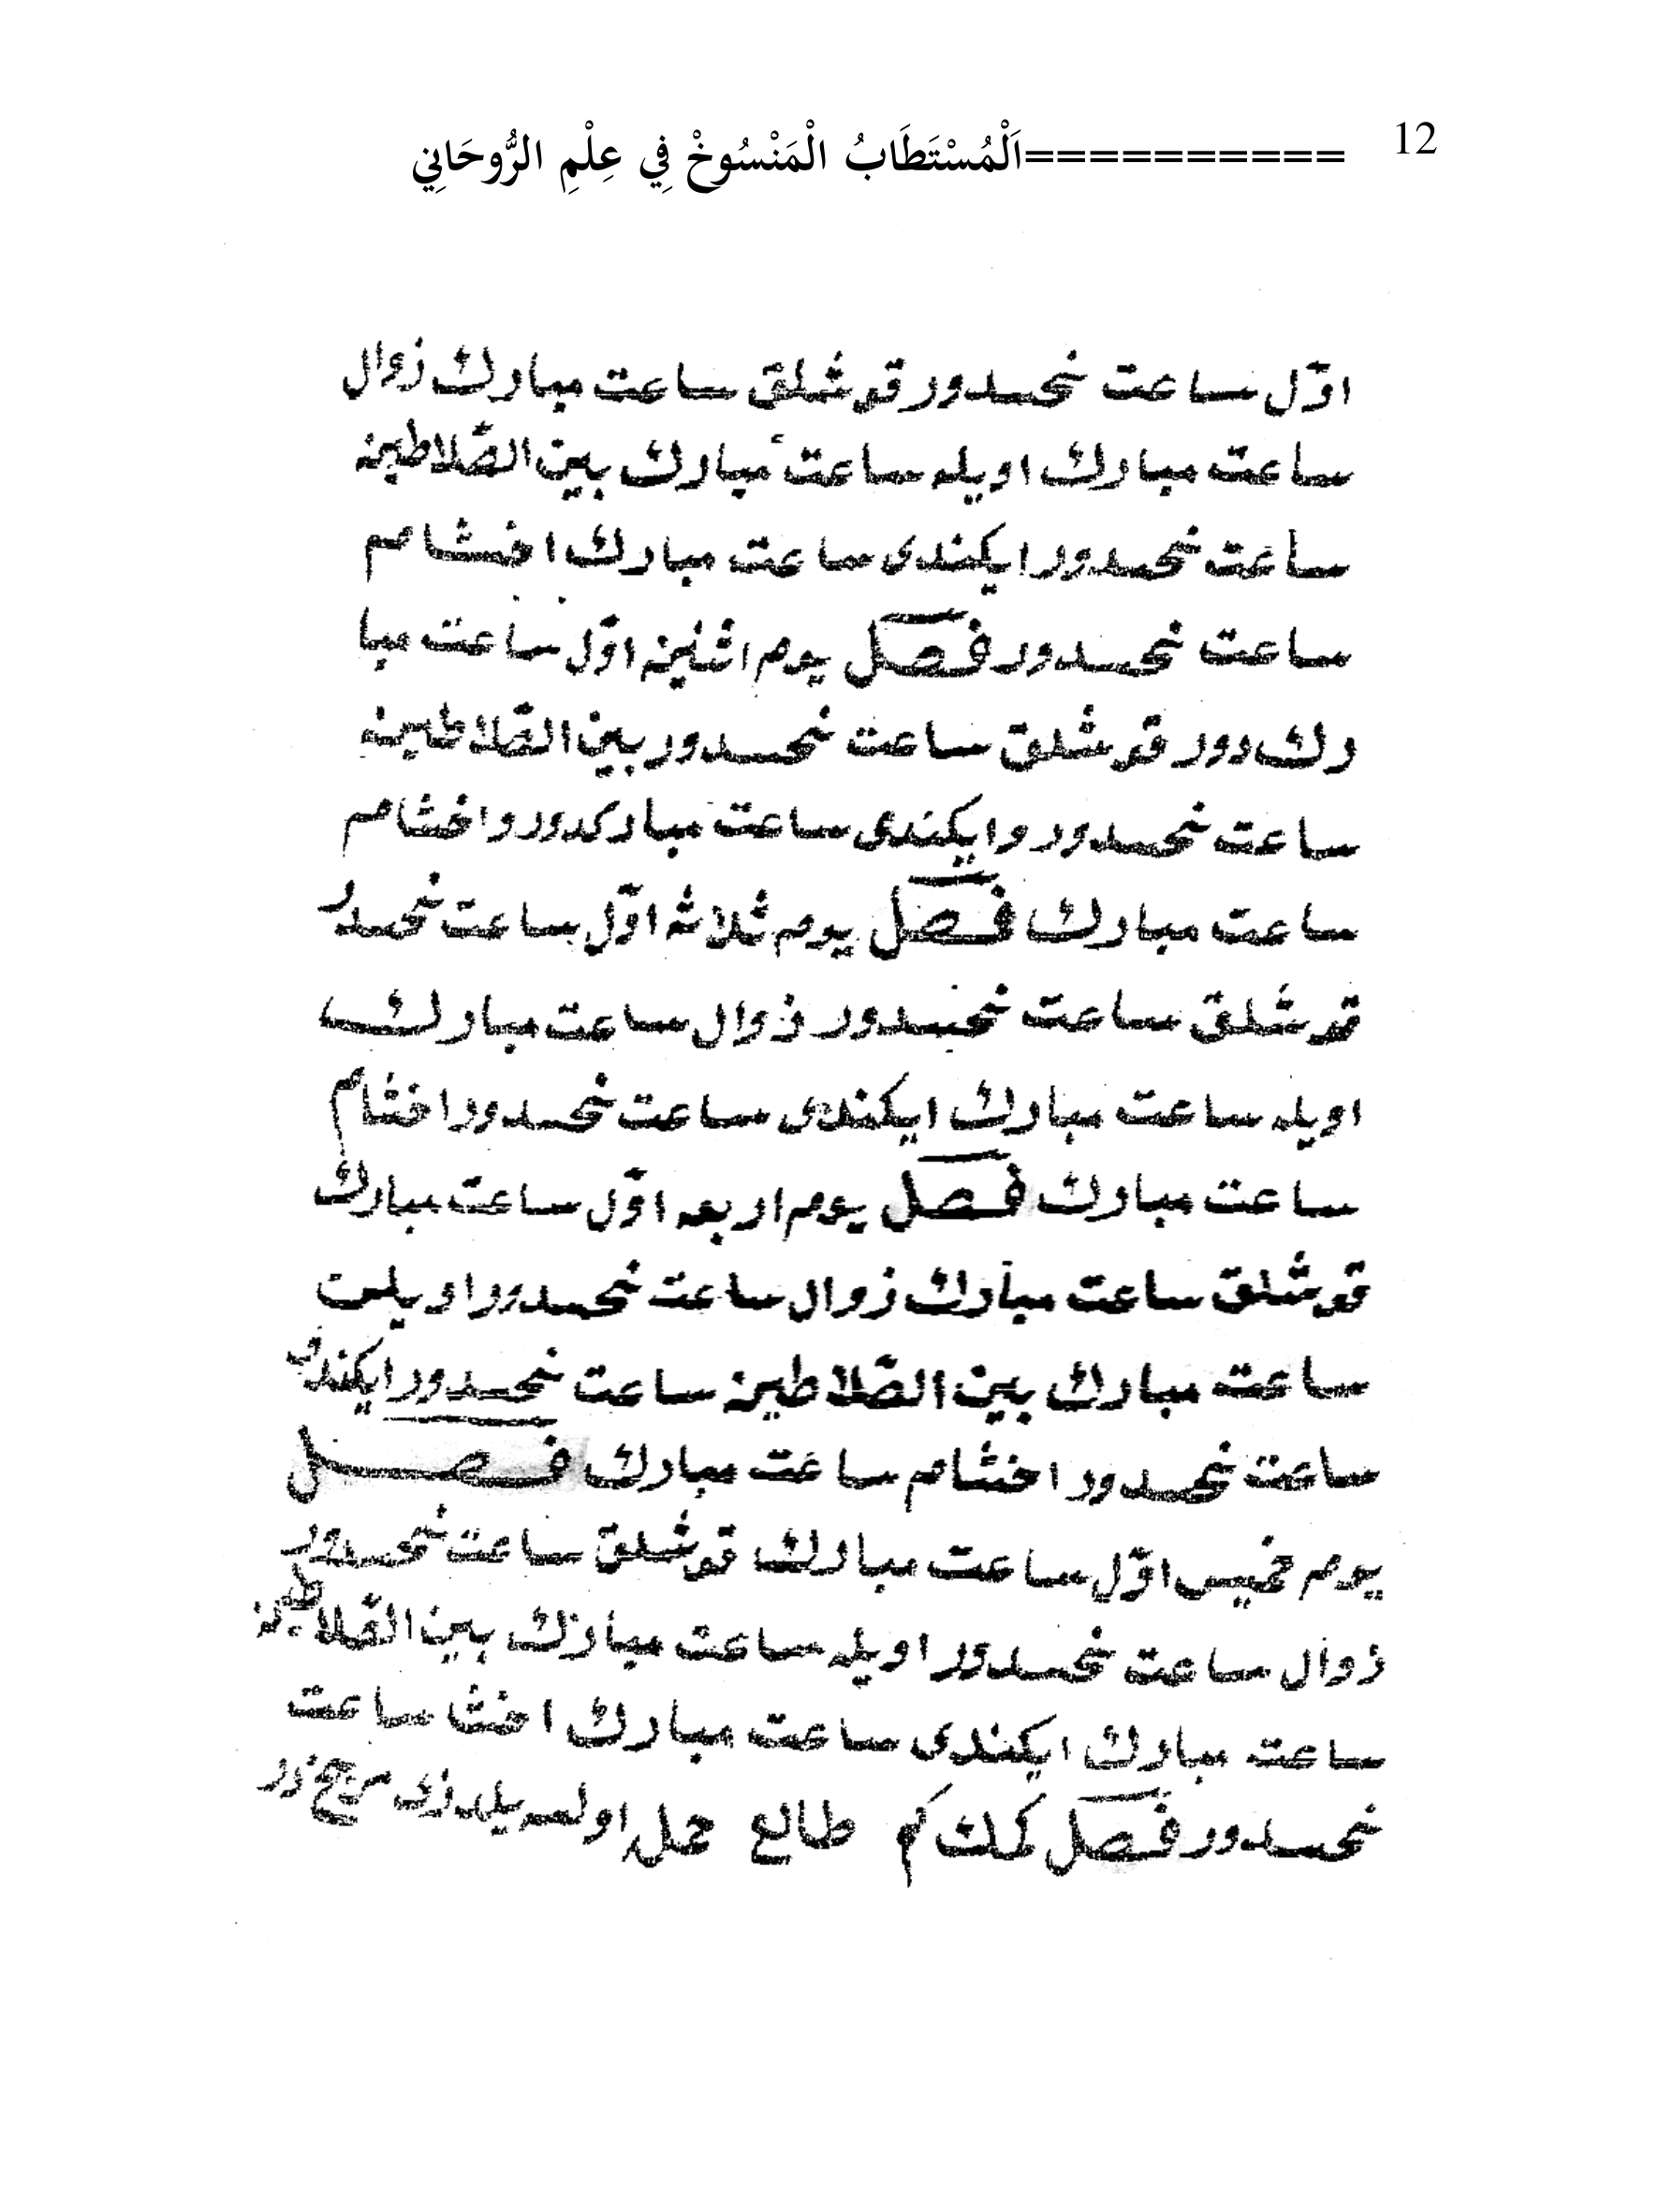 12 ==========اَلْمُسْتَطَابُ الْمَنْسُوخْ فِي عِلْمِ الرُّوحَانِي
اوّل ساعت نحسدور قوشلق ساعت مبارك زوال
ساعت مبارك اويله ساعت مبارك بين الصّلاطين
ساعت نحسدور ايكندى ساعت مبارك اخشام
ساعت نحسدور فصل يوم اثنين اوّل ساعت مبا
رك دور قوشلق ساعت نحسدور بين الصّلاطين
ساعت نحسدور وايكندى ساعت مباركدور واخشام
ساعت مبارك فصل يوم ثلاثه اوّل ساعت نحسدر
قوشلق ساعت نحسدور زوال ساعت مبارك
اويله ساعت مبارك ايكندى ساعت نحسدور اخشام
ساعت مبارك فصل يوم اربعه اوّل ساعت مبارك
قوشلق ساعت مبارك زوال ساعت نحسدور اويله
ساعت مبارك بين الصّلاطين ساعت نحسدور ايكندى
ساعت نحسدور اخشام ساعت مبارك فصل
يوم خميس اوّل ساعت مبارك قوشلق ساعت نحسدور
زوال ساعت نحسدور اويله ساعت مبارك بين الصّلاطين
ساعت مبارك ايكندى ساعت مبارك اخشا ساعت
نحسدور فصل كم طالع حمل اولسه يلدزى مريخ در